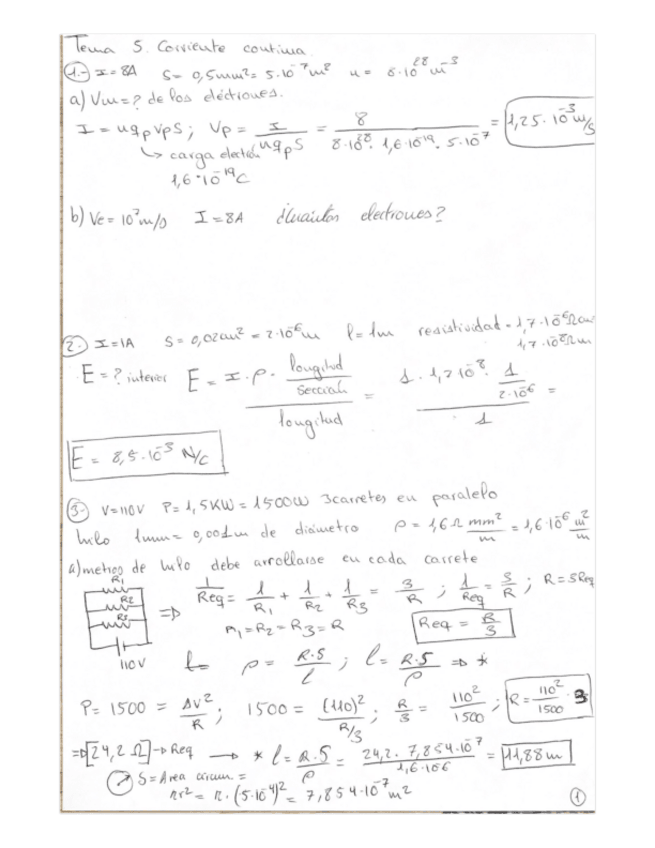 Tema 5. Corriente continua.
1.- I = 8A S = 0,5mm² = 5·10⁻⁷m² n = 8·10²⁸ m⁻³
a) Vm = ? de los electrones.
I = nq_pV_pS ; Vp = I / nq_pS = 8 / 8·10²⁸·1,6·10⁻¹⁹·5·10⁻⁷ = 1,25·10⁻³ m/s
↳ carga electrón
1,6·10⁻¹⁹C
b) Ve = 10⁷m/s I = 8A ¿Cuántos electrones?
2.- I = 1A S = 0,02cm² = 2·10⁻⁶m l = 1m resistividad = 1,7·10⁻⁶Ωcm
1,7·10⁻⁸Ωm
E = ? interior E = I·ρ· longitud / sección / longitud = 1·1,7·10⁻⁸· 1 / 2·10⁻⁶ / 1 =
E = 8,5·10⁻³ N/C
3.- V = 110V P = 1,5KW = 1500W 3 carretes en paralelo
hilo 1mm = 0,001m de diámetro ρ = 1,6Ω mm²/m = 1,6·10⁻⁶ m²/m
a) metros de hilo debe arrollarse en cada carrete
R₁ R₂ R₃ ⇒ 1/Req = 1/R₁ + 1/R₂ + 1/R₃ = 3/R ; 1/Req = 3/R ; R = 3Req
R₁ = R₂ = R₃ = R Req = R/3
110V l = ρ = R·S / l ; l = R·S / ρ ⇒ *
P = 1500 = ΔV² / R ; 1500 = (110)² / R/3 ; R/3 = 110² / 1500 ; R = 110² / 1500 · 3
⇒ [24,2 Ω] → Req → * l = R·S / ρ = 24,2·7,854·10⁻⁷ / 1,6·10⁻⁶ = 11,88m
S = Área circun. =
πr² = π·(5·10⁻⁴)² = 7,854·10⁻⁷m²
1